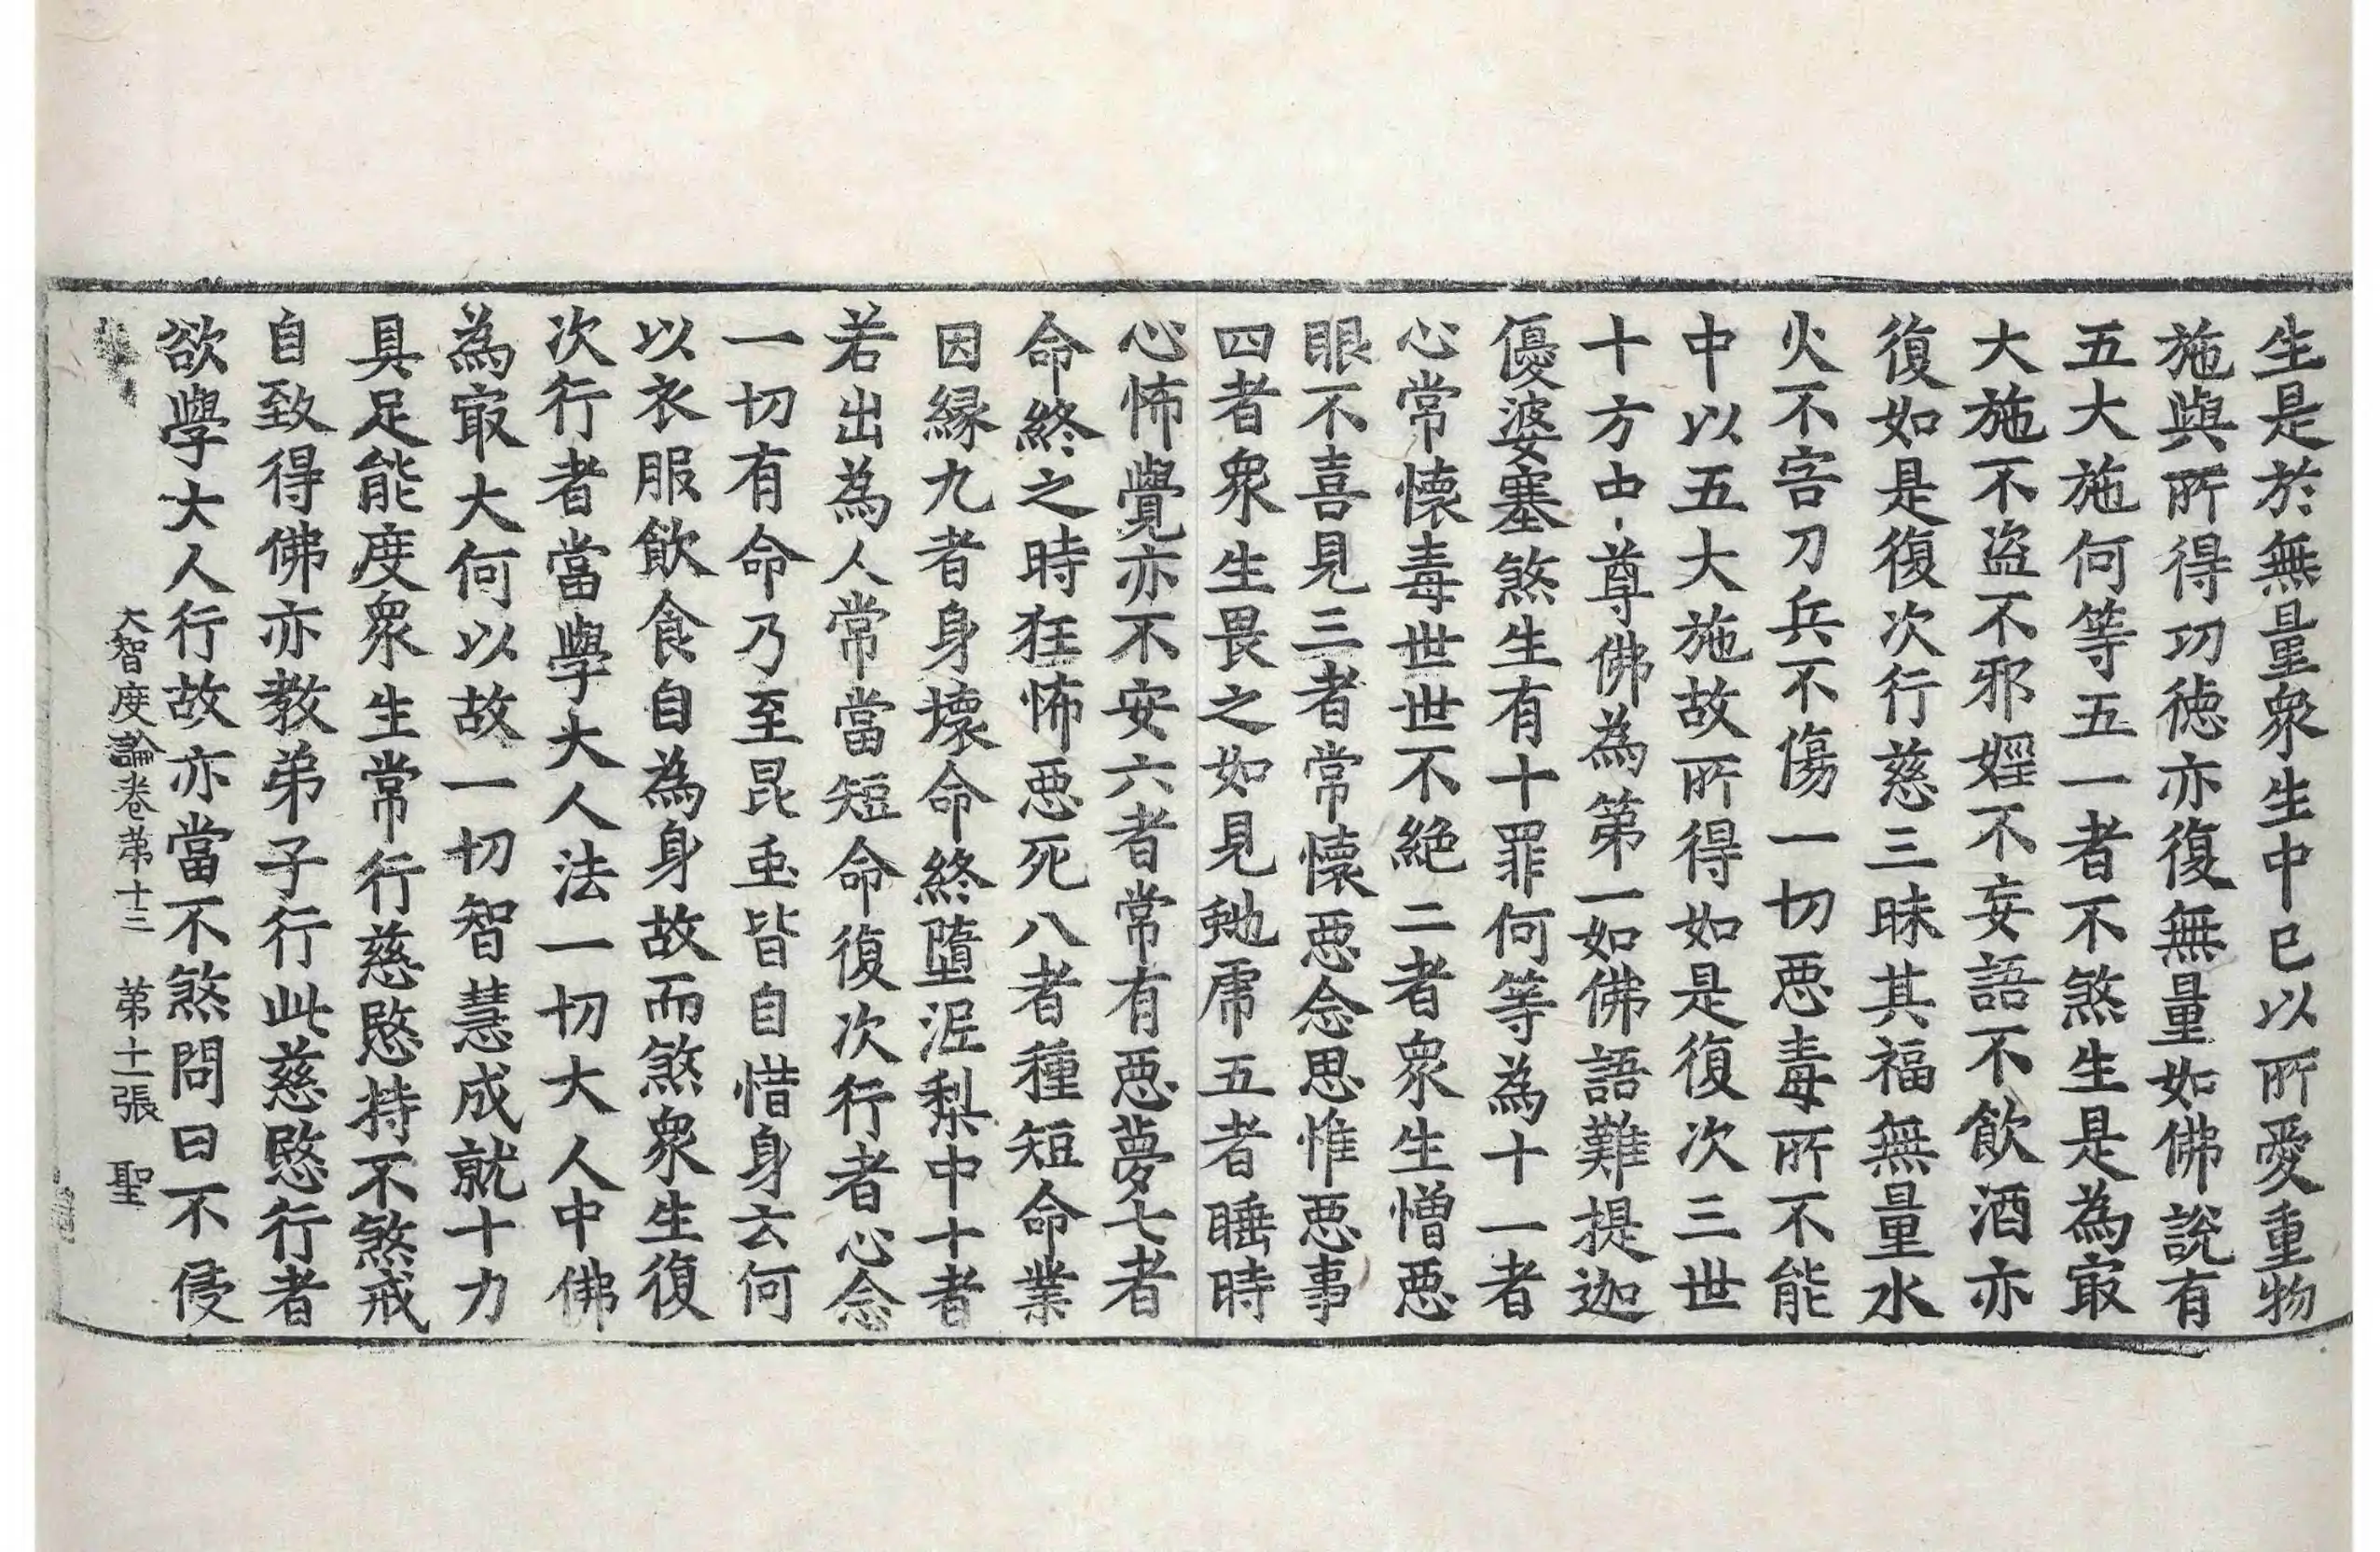 生是於無量衆生中已以所愛重物
施與所得功德亦復無量如佛說有
五大施何等五一者不煞生是為㝡
大施不盜不邪婬不妄語不飲酒亦
復如是復次行慈三昧其福無量水
火不害刀兵不傷一切惡毒所不能
中以五大施故所得如是復次三世
十方中尊佛為第一如佛語難提迦
優婆塞煞生有十罪何等為十一者
心常懷毒世世不絕二者衆生憎惡
眼不喜見三者常懷惡念思惟惡事
四者衆生畏之如見虵虎五者睡時
心怖覺亦不安六者常有惡夢七者
命終之時狂怖惡死八者種短命業
因緣九者身壞命終墮泥梨中十者
若出為人常當短命復次行者心念
一切有命乃至昆虫皆自惜身云何
以衣服飲食自為身故而煞衆生復
次行者當學大人法一切大人中佛
為㝡大何以故一切智慧成就十力
具足能度衆生常行慈愍持不煞戒
自致得佛亦教弟子行此慈愍行者
欲學大人行故亦當不煞問曰不侵
大智度論卷第十三 第十二張 聖